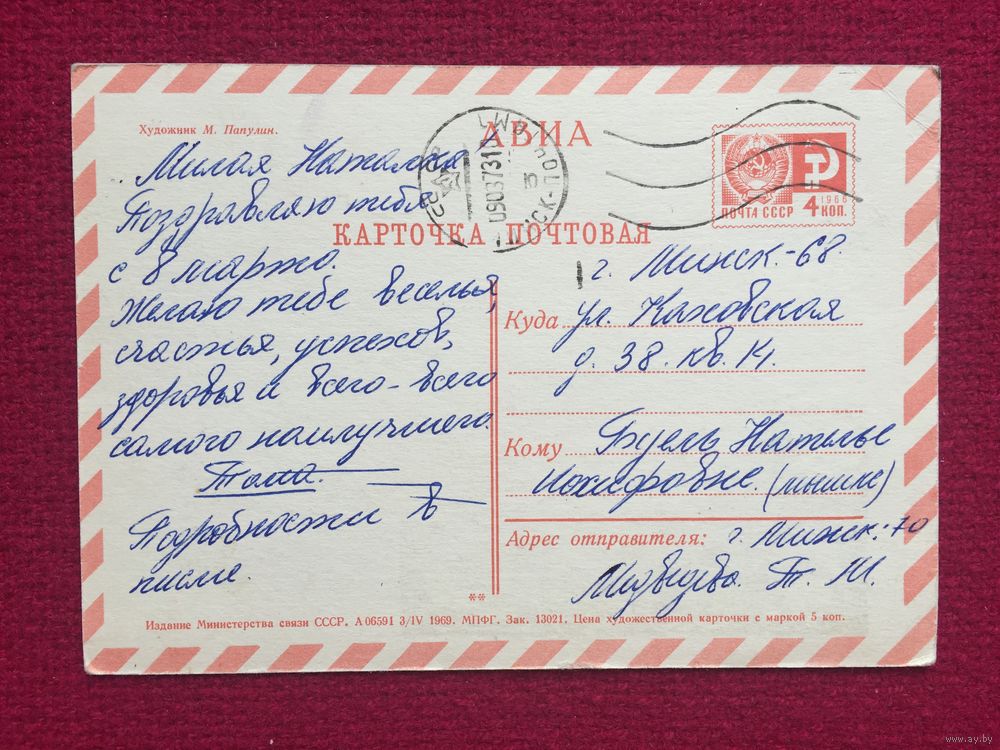 Художник М. Папулин.
АВИА
КАРТОЧКА ПОЧТОВАЯ
Милая Наташа
Поздравляю тебя
с 8 марта.
Желаю тебе веселья,
счастья, успехов,
здоровья и всего-всего
самого наилучшего.
Тома.
Подробности в
письме.
СССР
090373
1966
ПОЧТА СССР 4 КОП.
г. Минск-68.
Куда ул. Каховская
д. 38. кв. 14.
Кому Наталье
Иосифовне.
Адрес отправителя: г. Минск-70
Медведева. Т. М.
**
Издание Министерства связи СССР. А 06591 3/IV 1969. МПФГ. Зак. 13021. Цена художественной карточки с маркой 5 коп.
www.ay.by